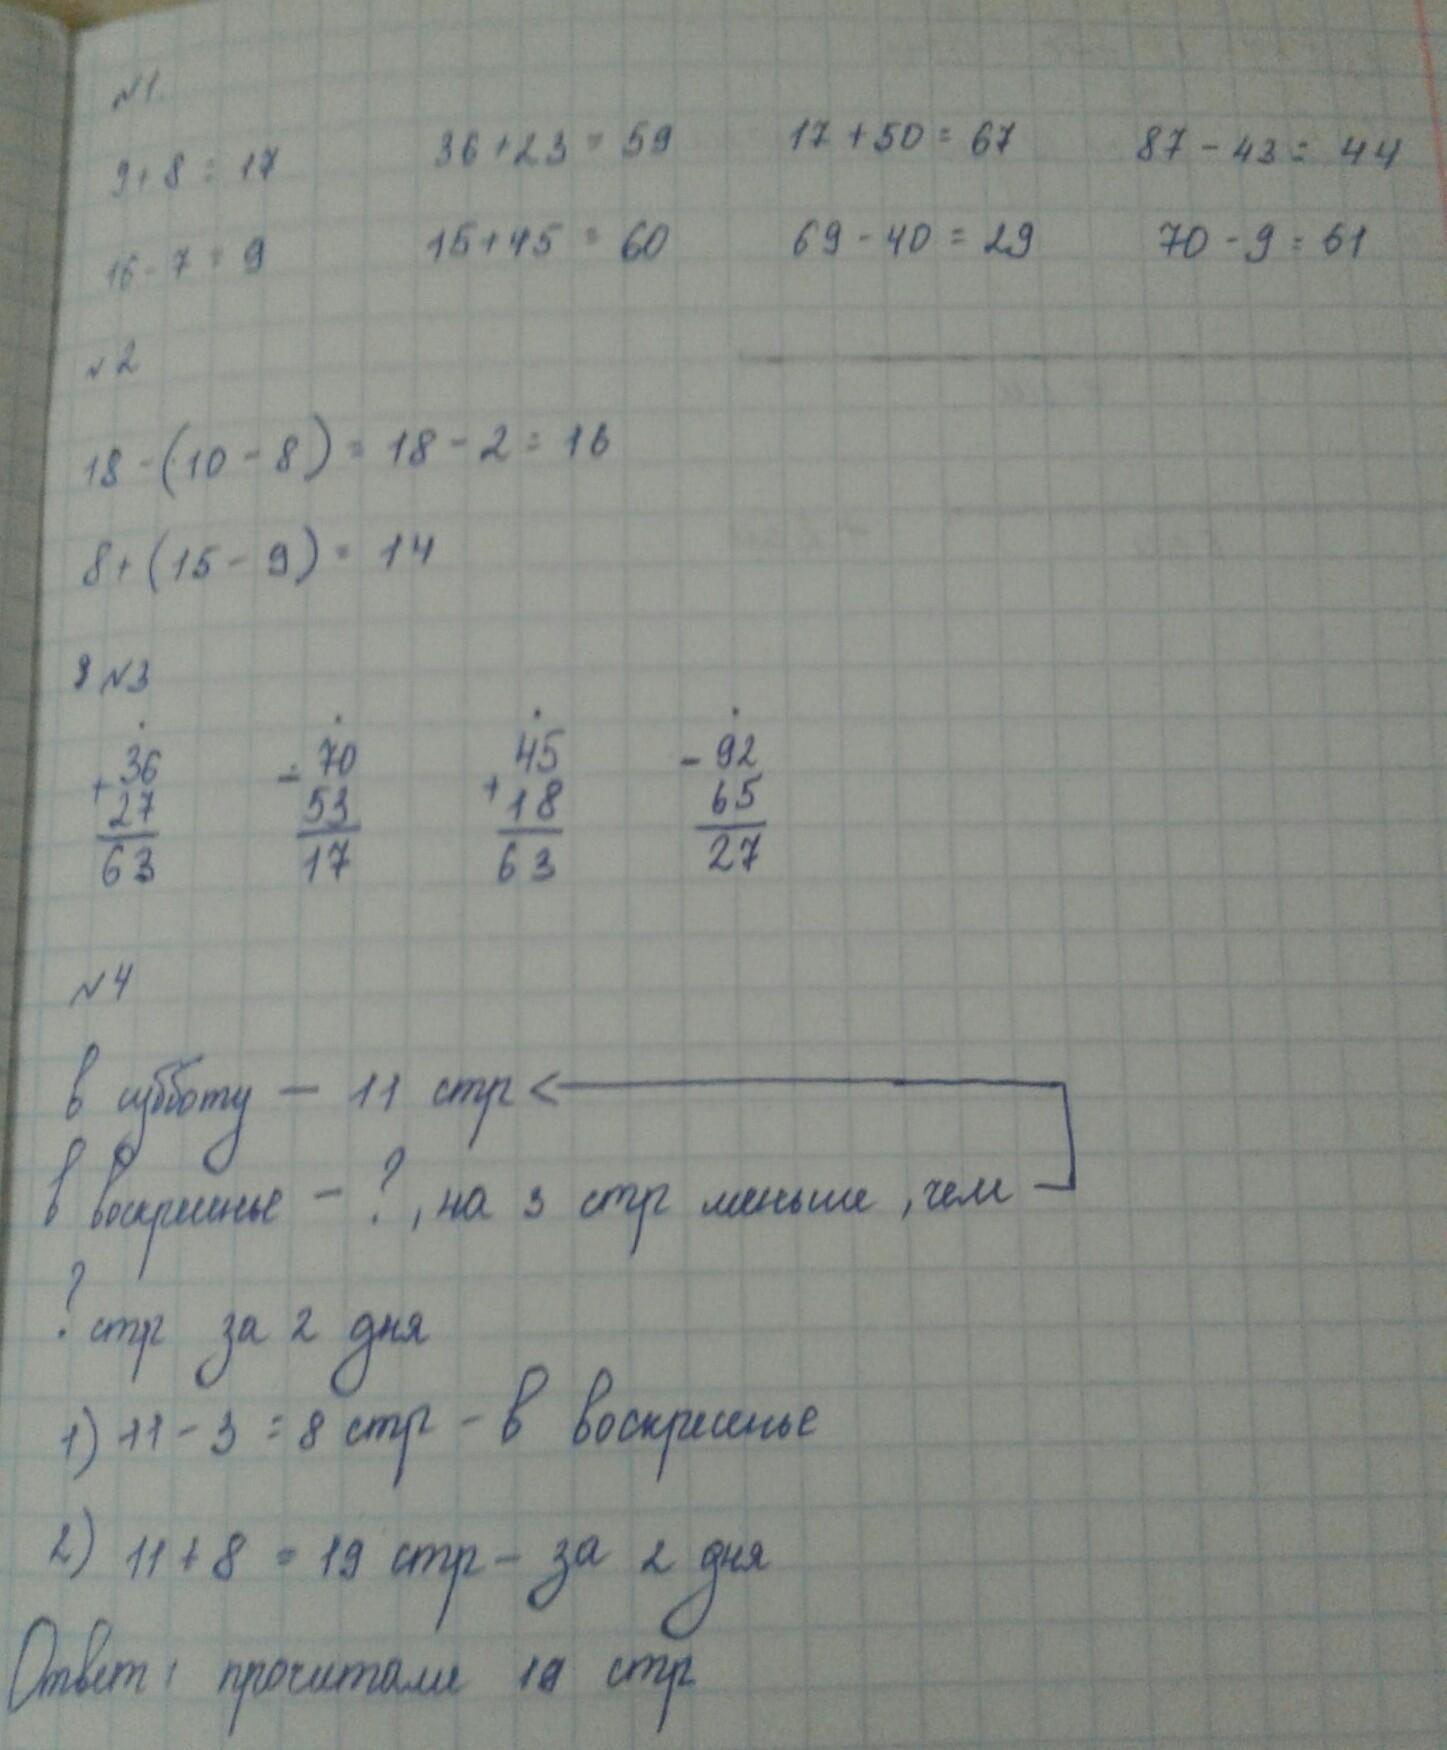 №1
9+8=17 36+23=59 17+50=67 87-43=44
16-7=9 15+45=60 69-40=29 70-9=61
№2
18-(10-8)=18-2=16
8+(15-9)=14
№3
+36 -70 +45 -92
27 53 18 65
63 17 63 27
№4
в субботу — 11 стр <
в воскресенье — ?, на 3 стр меньше, чем
? стр за 2 дня
1) 11-3=8 стр - в воскресенье
2) 11+8=19 стр - за 2 дня
Ответ: прочитали 19 стр